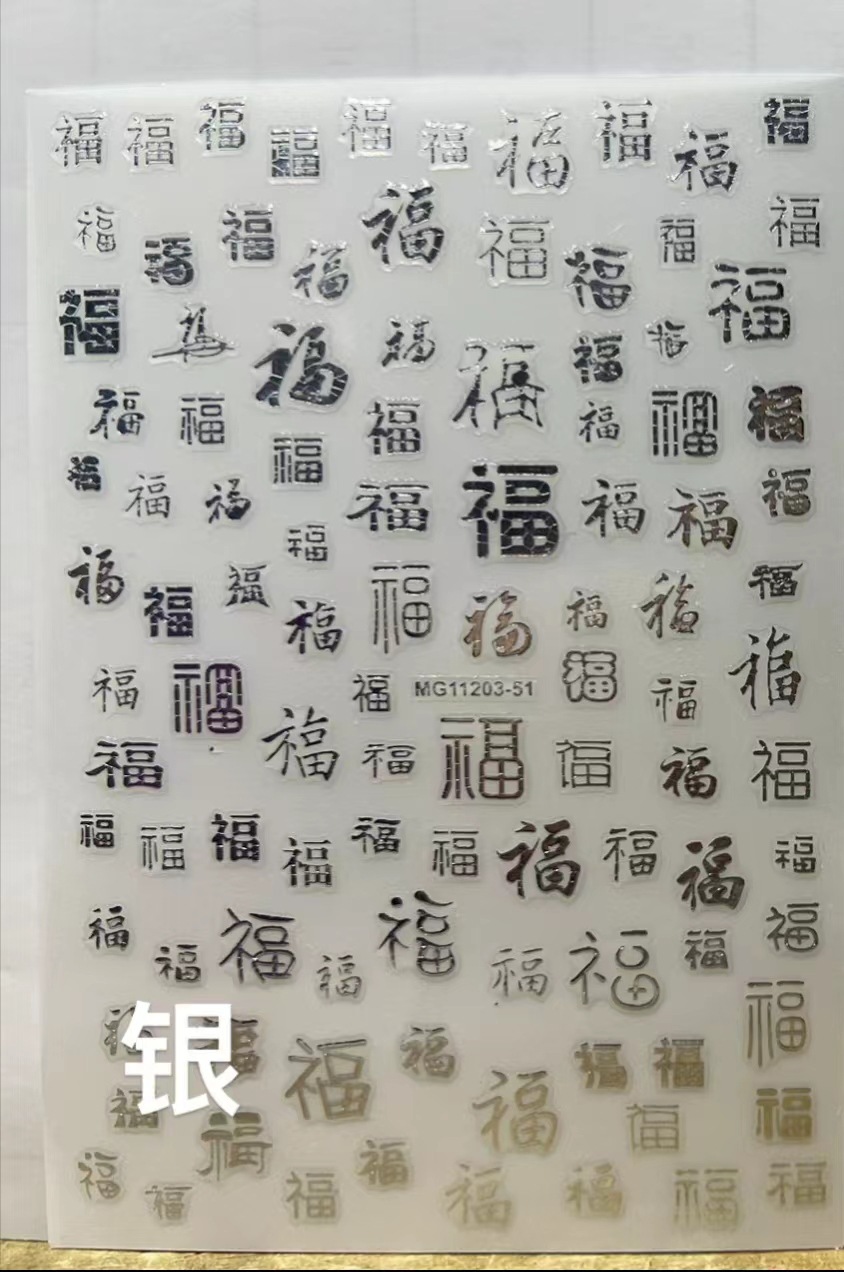 福福福福福福福福福福
福福福福福福福福福福
福福福福福福福
福福福福福福福
福福福福福福福福
福福福福福福福福福福
福福福MG11203-51福福福
福福福福福福福
福福福福福福福福福福
福福福福福福福福福
福福福福福福福
银
福福福福福
福福福福福福福福